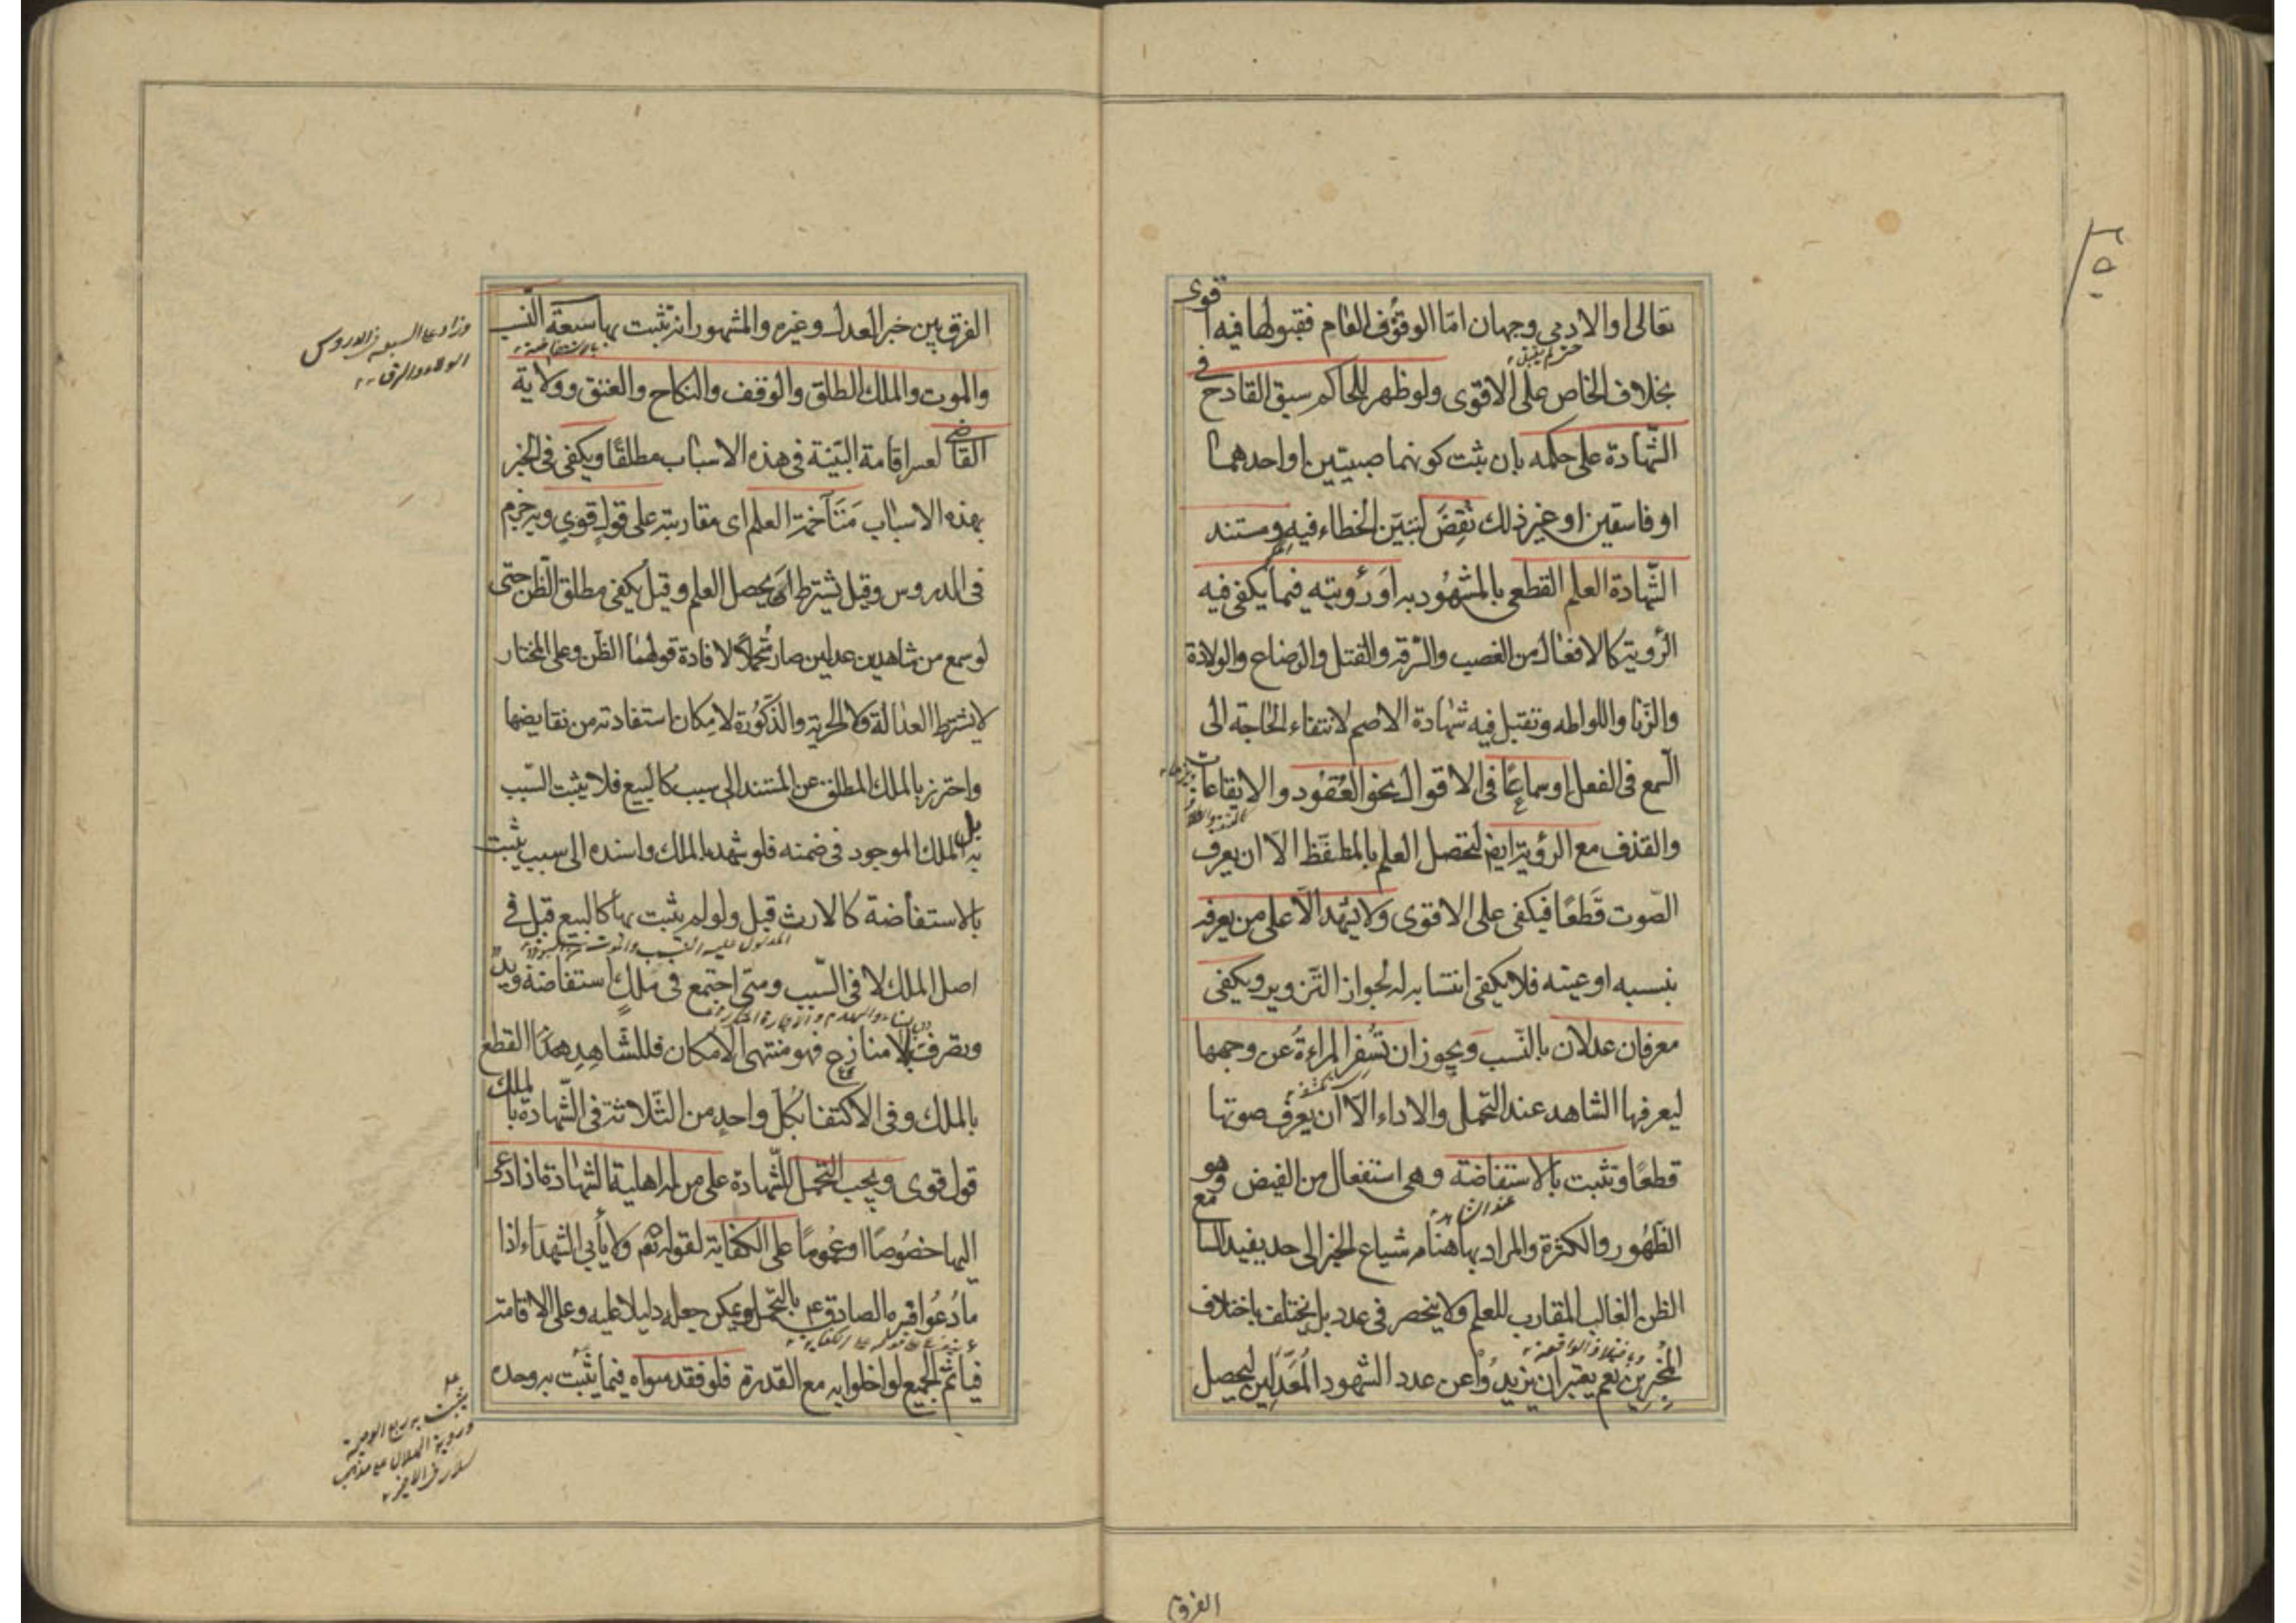 تعالى او الادمى وجهان امّا الوقوف العام فقبولها فيه اقوى
بخلاف الخاص على الاقوى ولو ظهر للحاكم سبق القادح في
الشّهادة على حكمه بان يثبت كونهما صبيّين او احدهما
او فاسقين او غير ذلك نُقِضَ لتبيّن الخطاء فيه ومستند
الشّهادة العلم القطعى بالمشهود به اَو رُؤيته فيما يكفى فيه
الرّؤية كالافعال من الغصب والسّرقة والقتل والرضاع والولادة
والزّنا واللواطه وتقبل فيه شهادة الاصم لانتفاء الحاجة الى
السّمع فى الفعل او سماعًا فى الاقوال نحو العُقُود والايقاعات
والقذف مع الرؤية ايضا ليحصل العلم بالمتلفّظ الّا ان يعرف
الصّوت قَطعًا فيكفى على الاقوى ولا يشهد الّا على من يعرفه
بنسبه او عينه فلا يكفى انتسابه له لجواز التّزوير ويكفى
معرفان عدلان بالنّسب ويجوز ان تُسفِر المراءةُ عن وجهها
ليعرفها الشاهد عند التّحمل والاداء الّا ان يعرف صوتها
قطعًا وتثبت بالاستفاضة وهى استفعال من الفيض وهو
الظّهُور والكثرة والمراد بها هنا شياع الخبر الى حد يفيد السامع
عند الشاهد
الظن الغالب المقارب للعلم ولا ينحصر فى عدد بل يختلف باختلاف
المُخبِرين نعم يعتبر ان يزيدُوا عن عدد الشهود المُعَدِّلين ليحصل
وباختلاف الواقعة
الفرق
الفرق بين خبر العدل وغيره والمشهور انه تثبت بها سبعة النّسب
بالاستفاضة
والموت والملك المطلق والوقف والنكاح والعتق وولاية
القاضى لعسر اقامة البيّنة فى هذه الاسباب مطلقًا ويكفى فى الخبر
بهذه الاسباب مَتَآخمة العلم اى مقاربته على قولٍ قوى وبه جزم
فى الدروس وقيل يشترط ان يحصل العلم وقيل يكفى مطلق الظّن حتى
لو سمع من شاهدين عدلين صار مُتحمّلًا لافادة قولهما الظّن وعلى المختار
لا يشترط العدالة ولا الحرية والذكورة لامكان استفادته من نقايضها
واحترز بالملك المطلق عن المستند الى سبب كالبيع فلا يثبت السّبب
به بل الملك الموجود فى ضمنه فلو شهد بالملك واسنده الى سبب يثبت
بالاستفاضة كالارث قبل ولو لم يثبت بها كالبيع قبل فى
اصل الملك لا فى السّبب ومتى اجتمع فى ملكٍ استفاضة ويد
وتصرف بلا منازع فهو منتهى الامكان فللشّاهِد القطع
بالملك وفى الاكتفا بكل واحدٍ من الثّلاثة فى الشّهادة بالملك
قول قوى ويجب التحمل للشّهادة على من له اهلية الشهادة اذا دعى
اليها خصُوصًا او عمُومًا على الكفاية لقوله تعم ولا يأبى الشهدَاء اذا
ما دُعُوا فسره الصادق ع بالتّحمل ويمكن جعله دليلا عليه وعلى الاقامة
فياثم الجميع لو اخلوا به مع القدرة فلو فقد سواه فيما يثبت به وحده
يثبت به ربع الوصية
وروية الهلال على مذهب
سلار